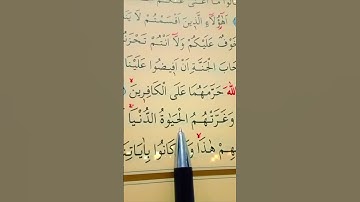 اَهٰٓؤُ۬لَٓاءِ الَّذ۪ينَ اَقْسَمْتُمْ لَا
خَوْفٌ عَلَيْكُمْ وَلَٓا اَنْتُمْ تَحْزَنُ
حَابَ الْجَنَّةِ اَنْ اَف۪يضُوا عَلَيْنَا
اللّٰهَ حَرَّمَهُمَا عَلَى الْكَافِر۪ينَۙ
وَغَرَّتْهُمُ الْحَيٰوةُ الدُّنْيَاۚ
هِمْ هٰذَاۙ وَ كَانُوا بِاٰيَاتِ